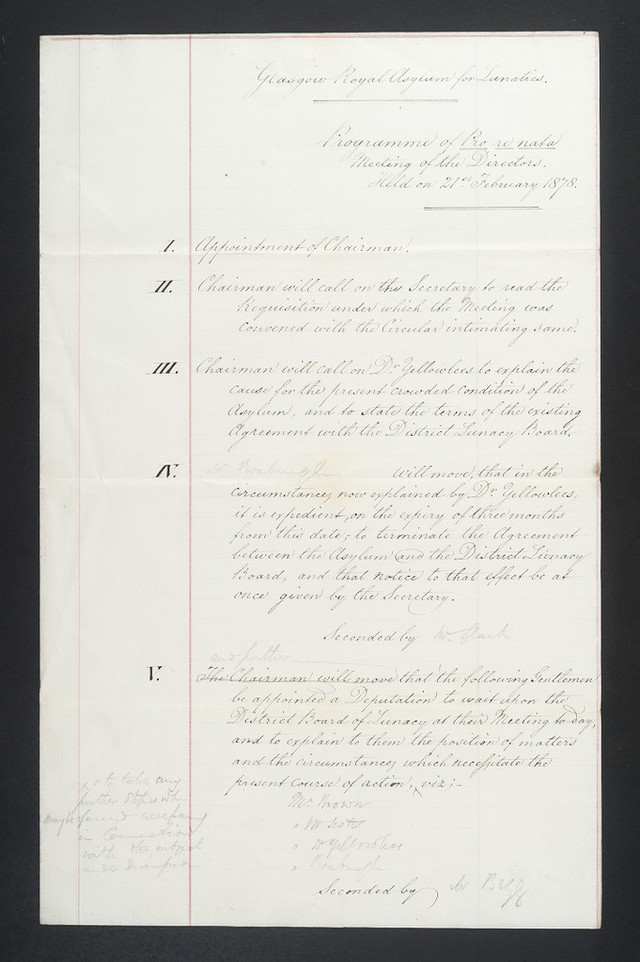 Glasgow Royal Asylum for Lunatics.
Programme of Pro re nata
Meeting of the Directors.
Held on 21st February 1878.
I. Appointment of Chairman.
II. Chairman will call on the Secretary to read the
Requisition under which the Meeting was
convened with the Circular intimating same.
III. Chairman will call on Dr Yellowlees to explain the
cause for the present crowded condition of the
Asylum, and to state the terms of the existing
Agreement with the District Lunacy Board.
IV. Mr Roxburgh will move, that in the
circumstances now explained by Dr Yellowlees,
it is expedient, on the expiry of three months
from this date, to terminate the Agreement
between the Asylum and the District Lunacy
Board, and that notice to that effect be at
once given by the Secretary.
Seconded by Mr Clark
and further
V. The Chairman will move that the following Gentlemen
be appointed a Deputation to wait upon the
District Board of Lunacy at their Meeting to-day,
and to explain to them the position of matters
and the circumstances which necessitate the
present course of action, viz:-
to take any
further steps wh
may be found necessary
in connection
with the subject
under discussion
Mr Brown
" Mr Scott
" Dr Yellowlees
" Roxburgh
Seconded by Mr